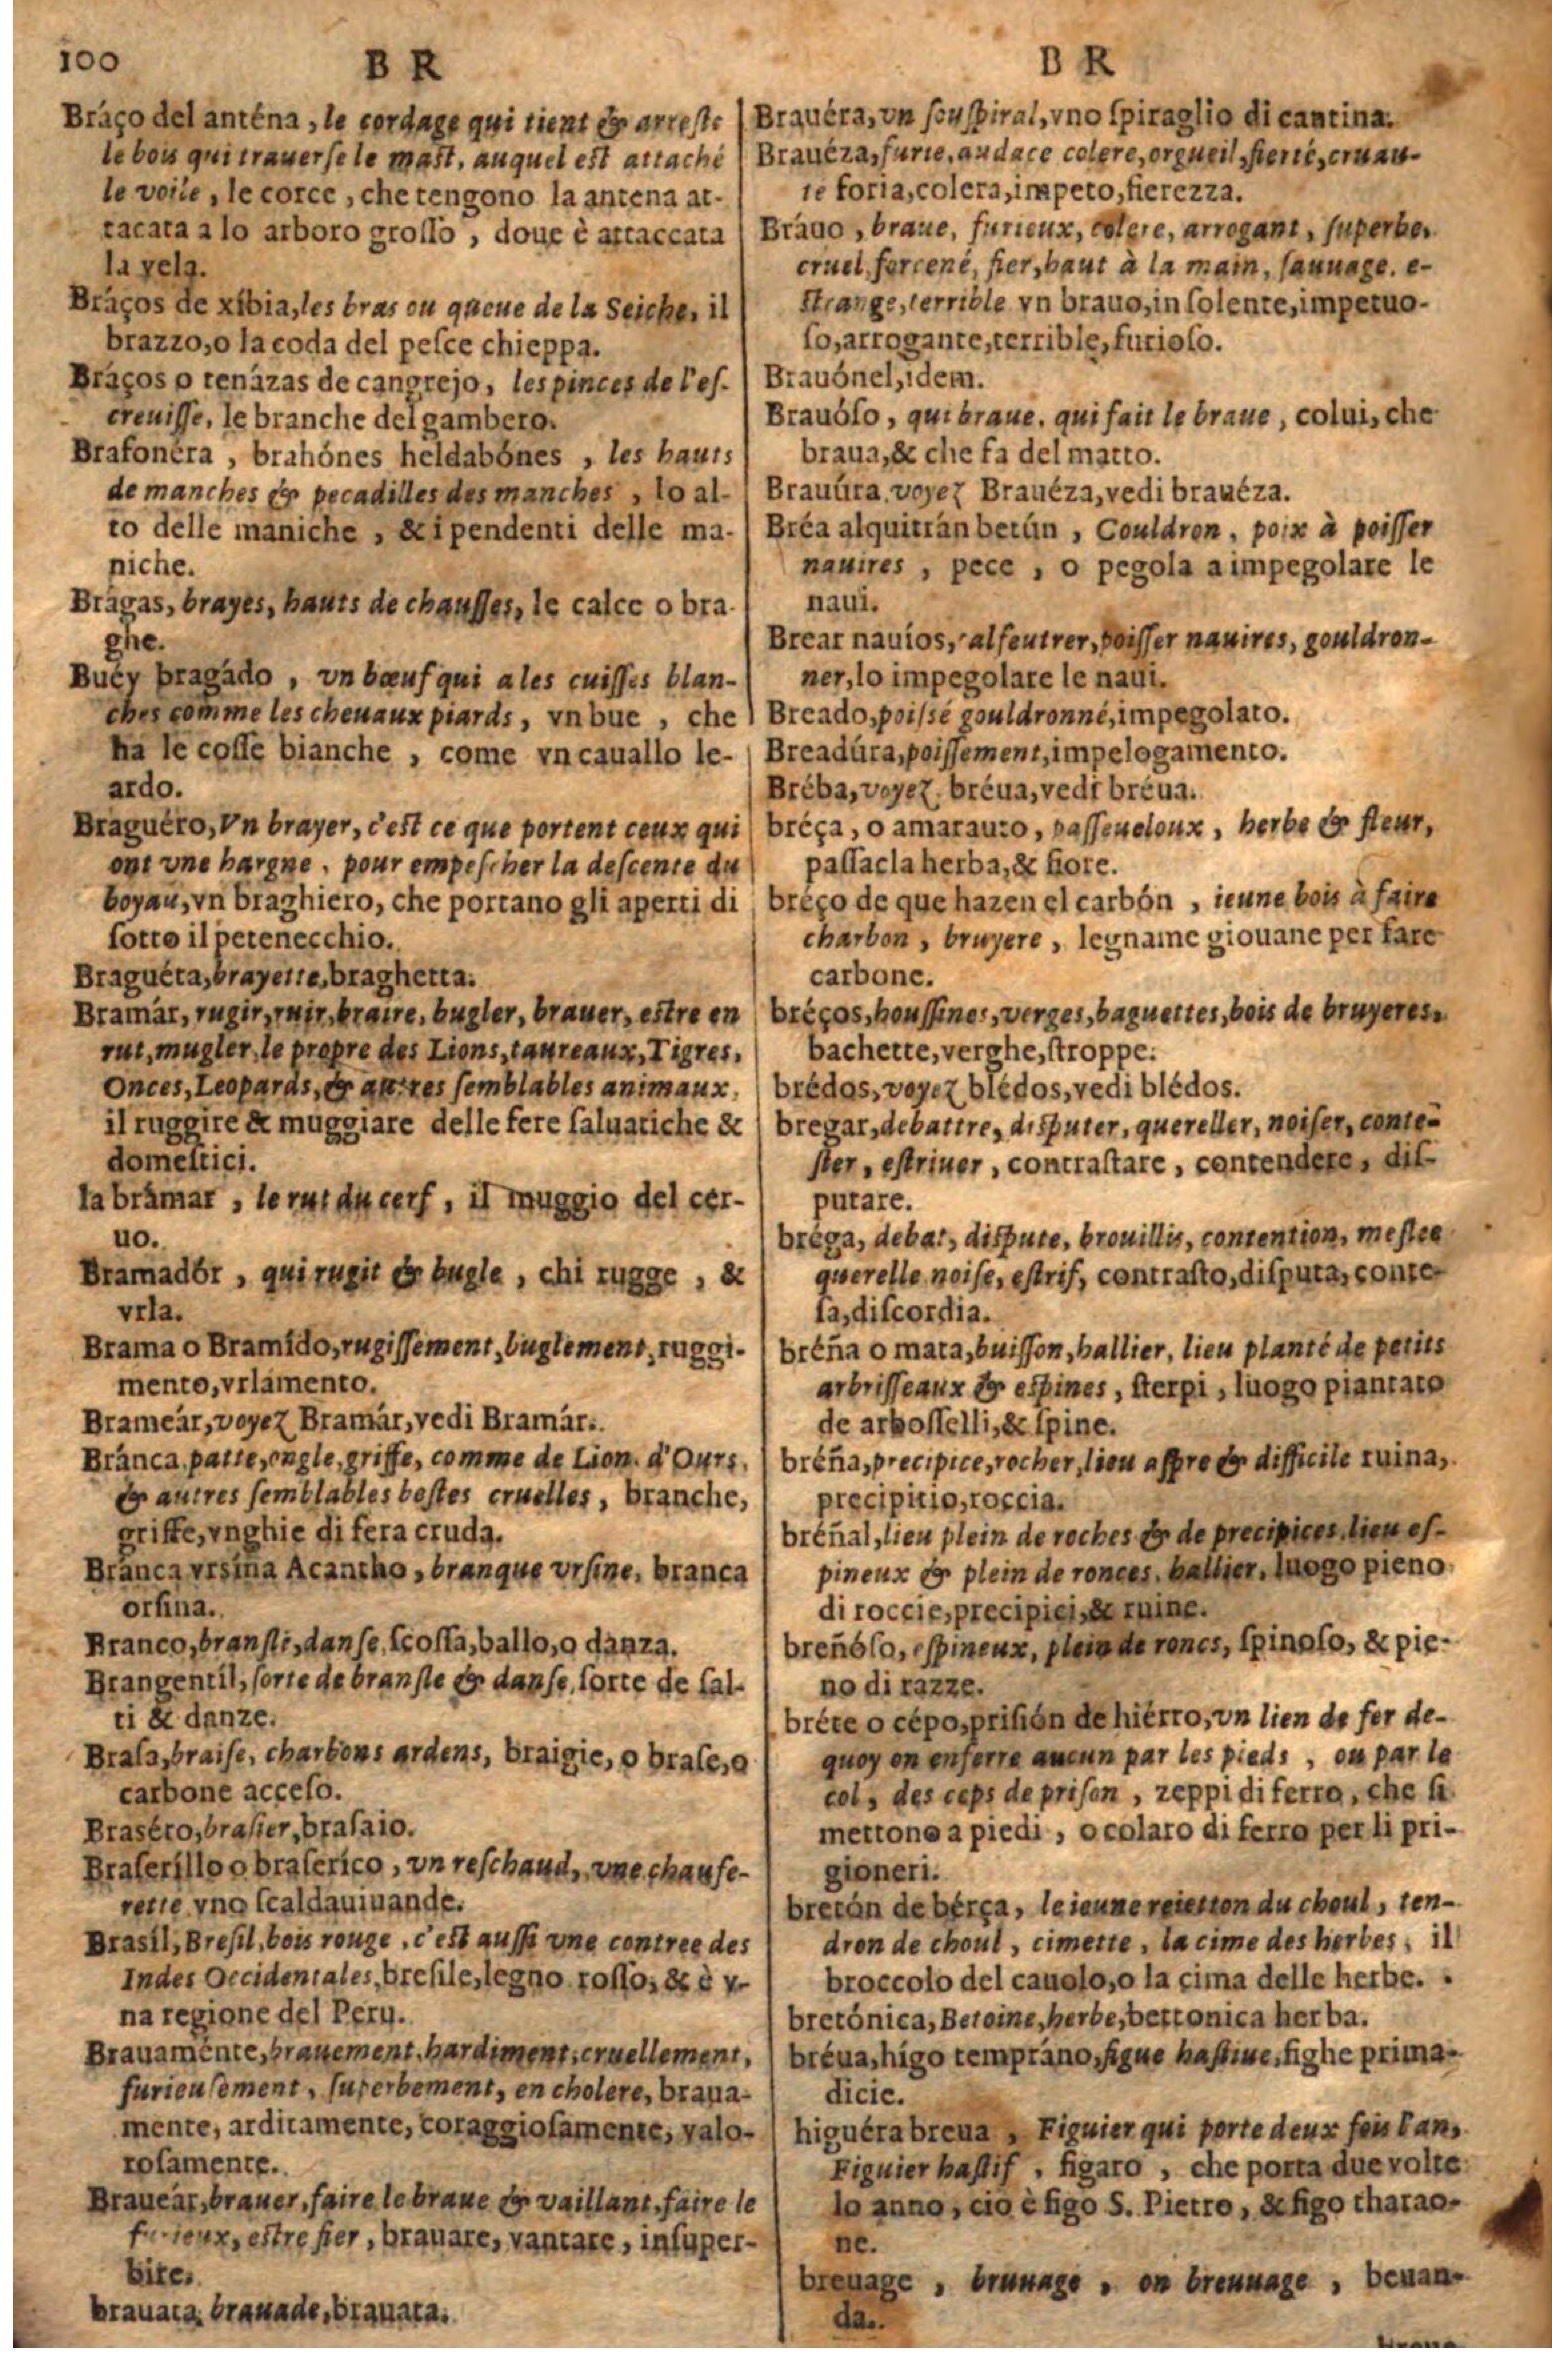 100
B R
Bráço del anténa, le cordage qui tient & arreste
le bois qui trauerse le mast, auquel est attaché
le voile, le corce, che tengono la antena at-
tacata a lo arboro grosso, doue è attaccata
la vela.
Bráços de xíbia, les bras ou queue de la Seiche, il
brazzo, o la coda del pesce chieppa.
Bráços o tenázas de cangrejo, les pinces de l'es-
creuisse, le branche del gambero.
Brafonéra, brahónes heldabónes, les hauts
de manches & pecadilles des manches, lo al-
to delle maniche, & i pendenti delle ma-
niche.
Brágas, brayes, hauts de chausses, le calce o bra-
ghe.
Buéy bragádo, vn bœuf qui a les cuisses blan-
ches comme les cheuaux piards, vn bue, che
ha le cosse bianche, come vn cauallo le-
ardo.
Braguéro, Vn brayer, c'est ce que portent ceux qui
ont vne hargne, pour empescher la descente du
boyau, vn braghiero, che portano gli aperti di
sotto il petenecchio.
Braguéta, brayette, braghetta.
Bramár, rugir, ruir, braire, bugler, brauer, estre en
rut, mugler, le propre des Lions, taureaux, Tigres,
Onces, Leopards, & autres semblables animaux,
il ruggire & muggiare delle fere saluatiche &
domestici.
la brámar, le rut du cerf, il muggio del cer-
uo.
Bramadór, qui rugit & bugle, chi rugge, &
vrla.
Brama o Bramído, rugissement, buglement, ruggi-
mento, vrlamento.
Brameár, voyez Bramár, vedi Bramár.
Bránca, patte, ongle, griffe, comme de Lion, d'Ours,
& autres semblables bestes cruelles, branche,
griffe, vnghie di fera cruda.
Bránca vrsína Acantho, branque vrsine, branca
orsina.
Branco, bransle, danse, scossa, ballo, o danza.
Brangentíl, sorte de bransle & danse, sorte de sal-
ti & danze.
Brasa, braise, charbons ardens, braigie, o brase, o
carbone acceso.
Braséro, brasier, brasaio.
Braseríllo o braseríco, vn reschaud, vne chaufe-
rette vno scaldauiuande.
Brasíl, Bresil, bois rouge, c'est aussi vne contree des
Indes Occidentales, bresile, legno rosso, & è v-
na regione del Peru.
Brauaménte, brauement, hardiment, cruellement,
furieusement, superbement, en cholere, braua-
mente, arditamente, coraggiosamente, valo-
rosamente.
Braueár, brauer, faire le braue & vaillant, faire le
furieux, estre fier, brauare, vantare, insuper-
bite.
brauata, brauade, brauata.
B R
Brauéra, vn souspiral, vno spiraglio di cantina.
Brauéza, furie, audace colere, orgueil, fierté, cruau-
te foria, colera, impeto, fierezza.
Bráuo, braue, furieux, colere, arrogant, superbe,
cruel, forcené, fier, haut à la main, sauuage, e-
strange, terrible vn brauo, insolente, impetuo-
so, arrogante, terrible, furioso.
Brauónel, idem.
Brauóso, qui braue, qui fait le braue, colui, che
braua, & che fa del matto.
Brauúra, voyez Brauéza, vedi brauéza.
Bréa alquitrán betún, Gouldron, poix à poisser
nauires, pece, o pegola a impegolare le
naui.
Brear nauíos, alfeutrer, poisser nauires, gouldron-
ner, lo impegolare le naui.
Breado, poissé gouldronné, impegolato.
Breadúra, poissement, impelogamento.
Bréba, voyez, bréua, vedi bréua.
bréça, o amarauto, passeueloux, herbe & fleur,
passacla herba, & fiore.
bréço de que hazen el carbón, ieune bois à faire
charbon, bruyere, legname giouane per fare
carbone.
bréços, houssines, verges, baguettes, bois de bruyeres,
bachette, verghe, stroppe.
brédos, voyez blédos, vedi blédos.
bregar, debattre, disputer, quereller, noiser, conte-
ster, estriuer, contrastare, contendere, dis-
putare.
bréga, debat, dispute, brouillis, contention, meslee
querelle, noise, estrif, contrasto, disputa, conte-
sa, discordia.
bréña o mata, buisson, hallier, lieu planté de petits
arbrisseaux & espines, sterpi, luogo piantato
de arbosselli, & spine.
bréña, precipice, rocher, lieu aspre & difficile ruina,
precipitio, roccia.
bréñal, lieu plein de roches & de precipices, lieu es-
pineux & plein de ronces, hallier, luogo pieno
di roccie, precipici, & ruine.
breñóso, espineux, plein de roncs, spinoso, & pie-
no di razze.
bréte o cépo, prisión de hiérro, vn lien de fer de-
quoy on enferre aucun par les pieds, ou par le
col, des ceps de prison, zeppi di ferro, che si
mettono a piedi, o colaro di ferro per li pri-
gioneri.
bretón de bérça, le ieune reietton du choul, ten-
dron de choul, cimette, la cime des herbes, il
broccolo del cauolo, o la cima delle herbe.
bretónica, Betoine, herbe, bettonica herba.
bréua, hígo tempráno, figue hastiue, fighe prima-
dicie.
higuéra breua, Figuier qui porte deux fois l'an,
Figuier hastif, figaro, che porta due volte
lo anno, cio è figo S. Pietro, & figo tharao-
ne.
breuage, bruuage, on breuuage, beuan-
da.